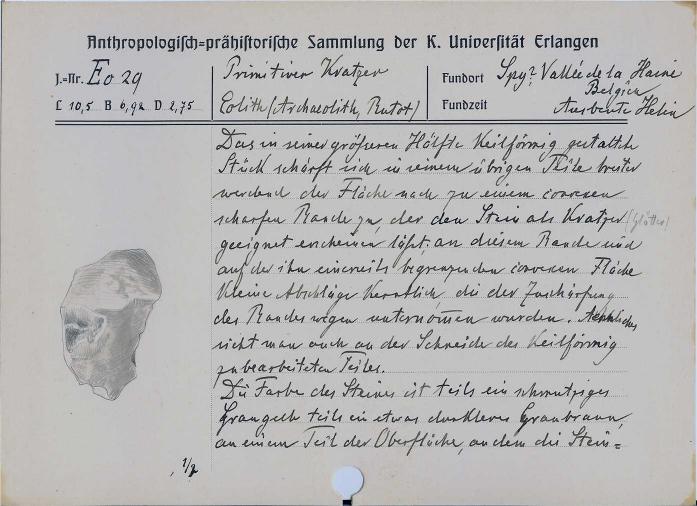 Anthropologisch=prähistorische Sammlung der K. Universität Erlangen
J.=Nr. Eo 29
L 10,5 B 6,92 D 2,75
Primitiver Kratzer
Eolith (Archaeolith, Rutot)
Fundort Spy? Vallée de la Haine
Belgien
Fundzeit Ausbeute Helin
Das in seiner grösseren Hälfte Keilförmig gestaltete
Stück schärft sich in seinem übrigen Teile breiter
werdend der Fläche nach zu einem convexen
scharfen Rande zu, der den Stein als Kratzer (Glätter)
geeignet erscheinen läßt; an diesem Rande sind
auf der ihn einerseits begrenzenden convexen Fläche
kleine Abschläge kenntlich die der Zuschärfung
des Randes wegen unternommen wurden. Ähnliches
sieht man auch an der Schneide des Keilförmig
zubearbeiteten Teiles.
Die Farbe des Steines ist teils ein schmutziges
Graugelb teils ein etwas dunkleres Graubraun,
an einem Teil der Oberfläche, an dem die Stein=
1/2